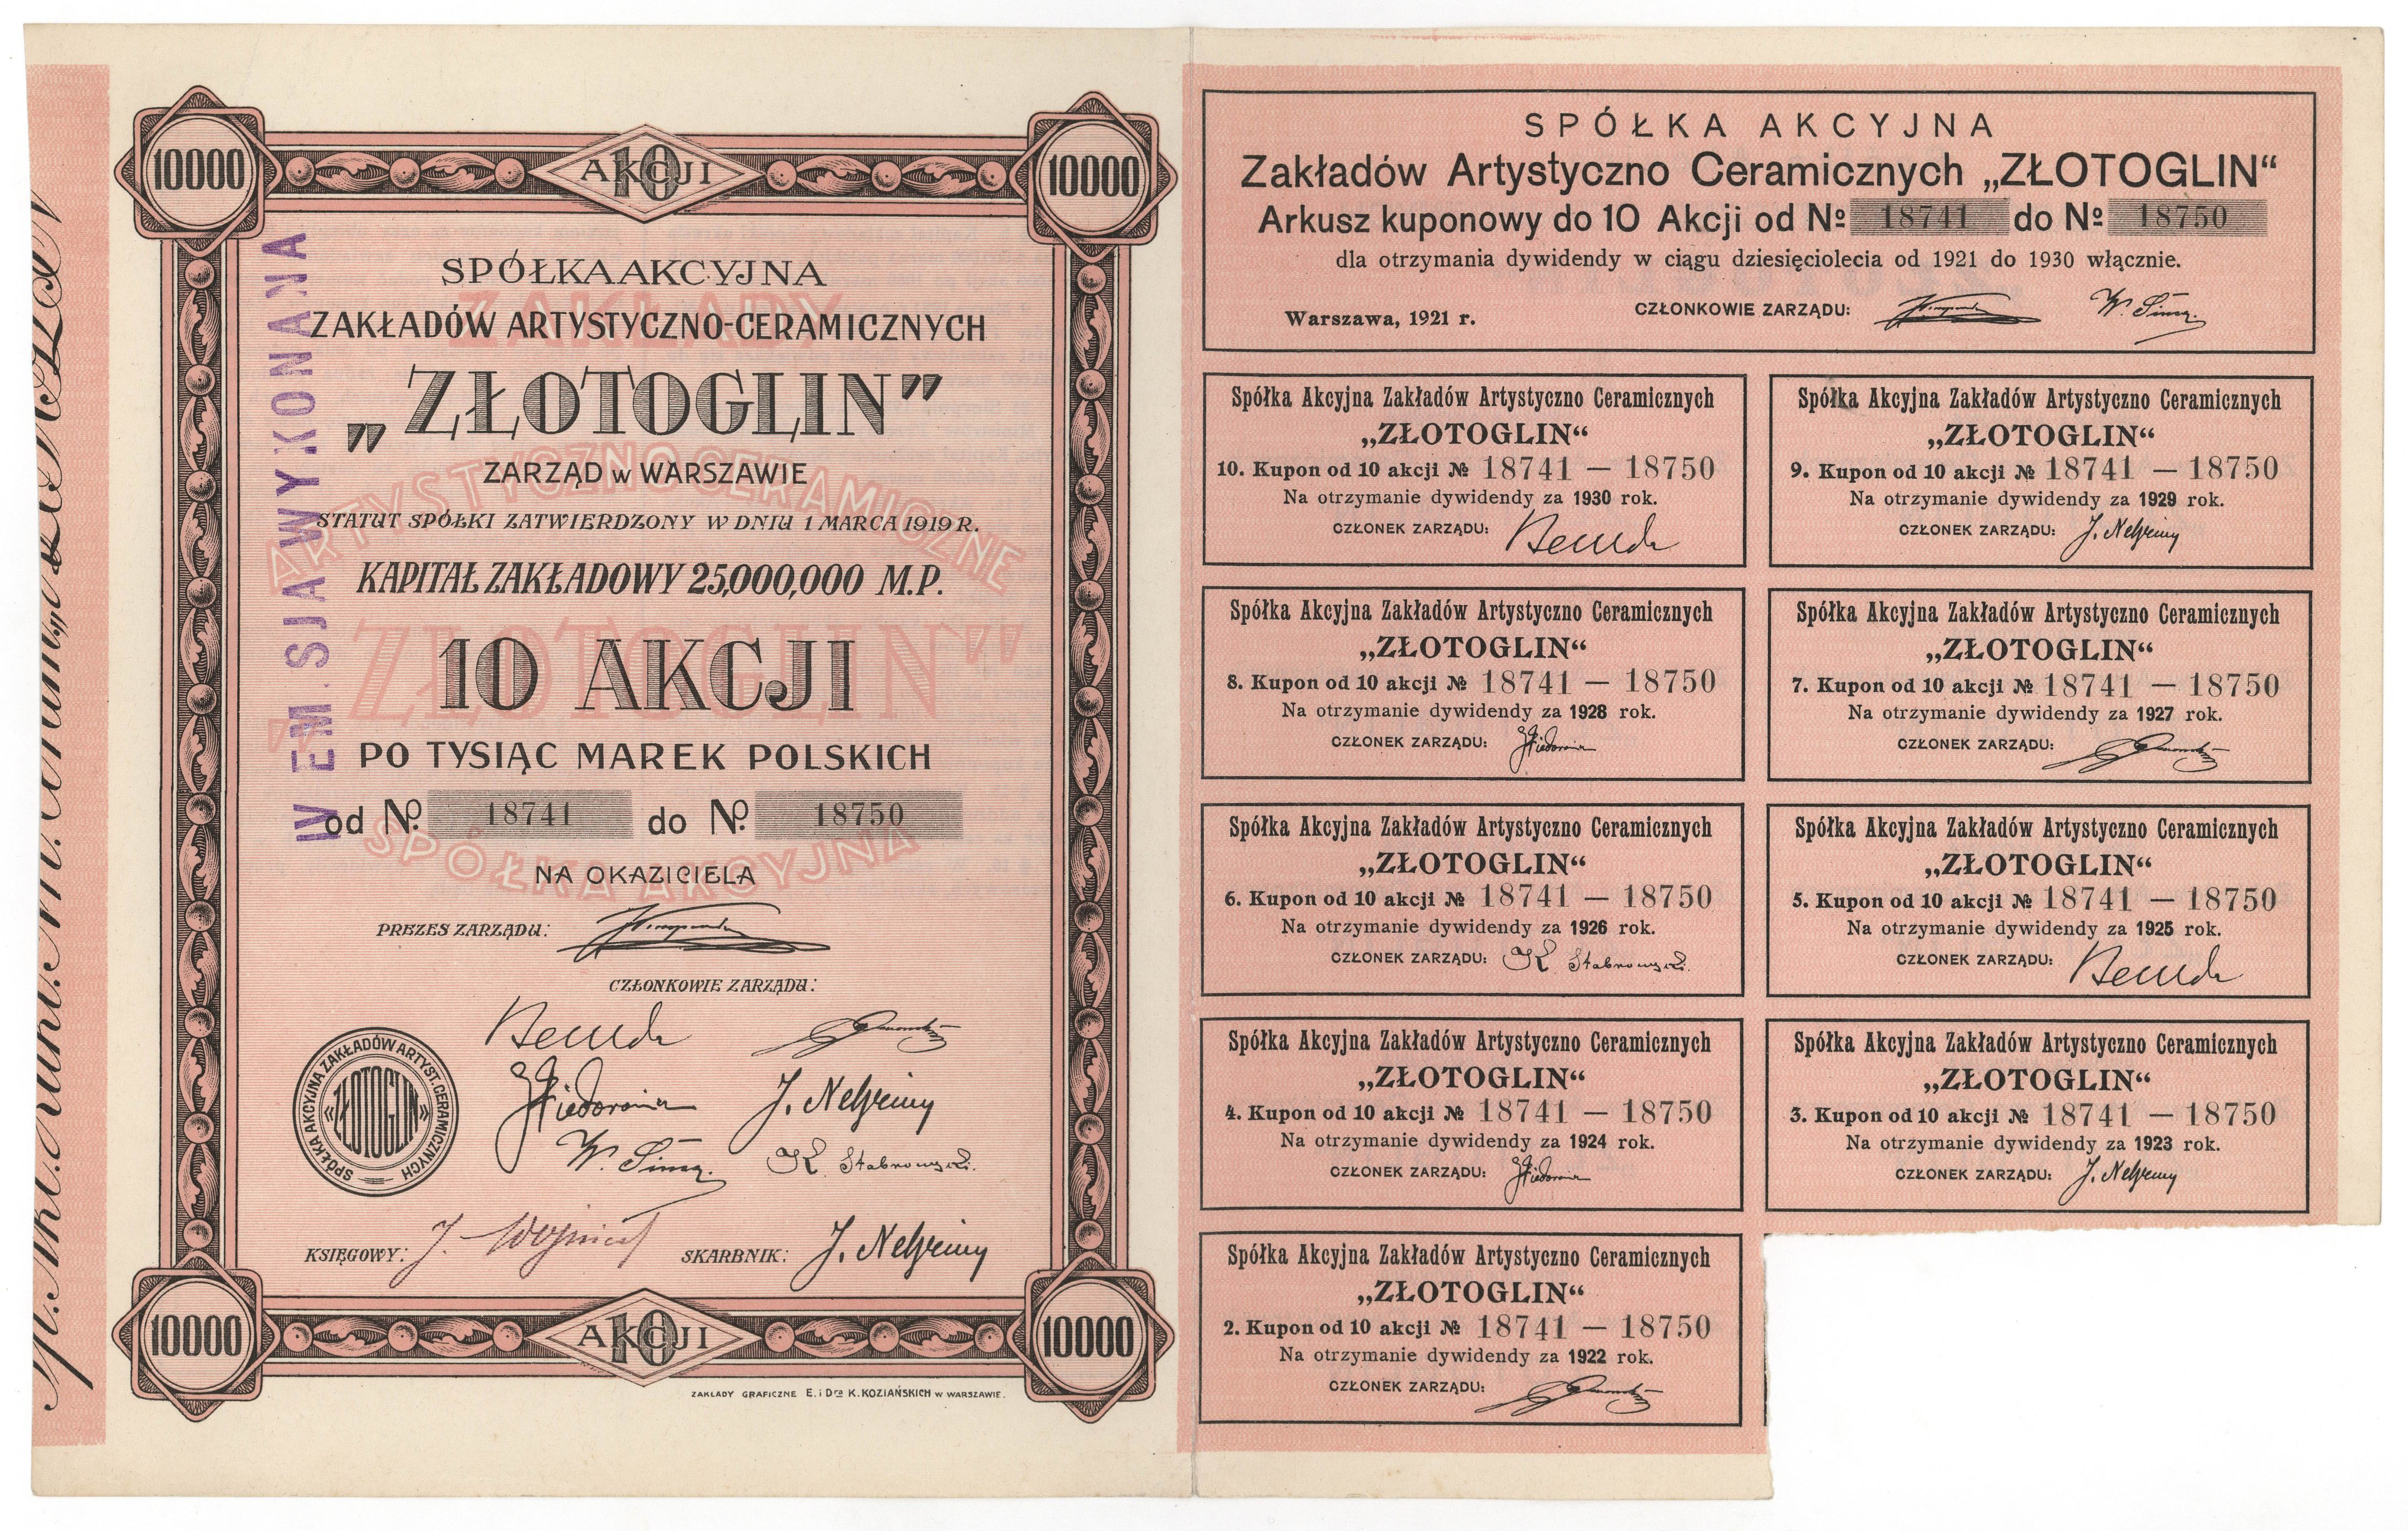 10000
10 AKCJI
10000
SPÓŁKA AKCYJNA
ZAKŁADÓW ARTYSTYCZNO-CERAMICZNYCH
„ZŁOTOGLIN”
ZARZĄD w WARSZAWIE
STATUT SPÓŁKI ZATWIERDZONY W DNIU 1 MARCA 1919 R.
KAPITAŁ ZAKŁADOWY 25,000,000 M.P.
10 AKCJI
PO TYSIĄC MAREK POLSKICH
od № 18741 do № 18750
NA OKAZICIELA
PREZES ZARZĄDU:
CZŁONKOWIE ZARZĄDU:
J. Nelken
W. Simm
K. Stabrowski
SPÓŁKA AKCYJNA ZAKŁADÓW ARTYST. CERAMICZNYCH
«ZŁOTOGLIN»
KSIĘGOWY: SKARBNIK:
10000
10 AKCJI
10000
ZAKŁADY GRAFICZNE E. i Dra K. KOZIAŃSKICH w WARSZAWIE.
ZAKŁADY
ARTYSTYCZNO CERAMICZNE
„ZŁOTOGLIN”
SPÓŁKA AKCYJNA
IV EM. SJA WYKONANA
SPÓŁKA AKCYJNA
Zakładów Artystyczno Ceramicznych „ZŁOTOGLIN“
Arkusz kuponowy do 10 Akcji od № 18741 do № 18750
dla otrzymania dywidendy w ciągu dziesięciolecia od 1921 do 1930 włącznie.
Warszawa, 1921 r. CZŁONKOWIE ZARZĄDU:
Spółka Akcyjna Zakładów Artystyczno Ceramicznych
„ZŁOTOGLIN“
10. Kupon od 10 akcji № 18741 — 18750
Na otrzymanie dywidendy za 1930 rok.
CZŁONEK ZARZĄDU:
Spółka Akcyjna Zakładów Artystyczno Ceramicznych
„ZŁOTOGLIN“
9. Kupon od 10 akcji № 18741 — 18750
Na otrzymanie dywidendy za 1929 rok.
CZŁONEK ZARZĄDU:
Spółka Akcyjna Zakładów Artystyczno Ceramicznych
„ZŁOTOGLIN“
8. Kupon od 10 akcji № 18741 — 18750
Na otrzymanie dywidendy za 1928 rok.
CZŁONEK ZARZĄDU:
Spółka Akcyjna Zakładów Artystyczno Ceramicznych
„ZŁOTOGLIN“
7. Kupon od 10 akcji № 18741 — 18750
Na otrzymanie dywidendy za 1927 rok.
CZŁONEK ZARZĄDU:
Spółka Akcyjna Zakładów Artystyczno Ceramicznych
„ZŁOTOGLIN“
6. Kupon od 10 akcji № 18741 — 18750
Na otrzymanie dywidendy za 1926 rok.
CZŁONEK ZARZĄDU: K. Stabrowski
Spółka Akcyjna Zakładów Artystyczno Ceramicznych
„ZŁOTOGLIN“
5. Kupon od 10 akcji № 18741 — 18750
Na otrzymanie dywidendy za 1925 rok.
CZŁONEK ZARZĄDU:
Spółka Akcyjna Zakładów Artystyczno Ceramicznych
„ZŁOTOGLIN“
4. Kupon od 10 akcji № 18741 — 18750
Na otrzymanie dywidendy za 1924 rok.
CZŁONEK ZARZĄDU:
Spółka Akcyjna Zakładów Artystyczno Ceramicznych
„ZŁOTOGLIN“
3. Kupon od 10 akcji № 18741 — 18750
Na otrzymanie dywidendy za 1923 rok.
CZŁONEK ZARZĄDU:
Spółka Akcyjna Zakładów Artystyczno Ceramicznych
„ZŁOTOGLIN“
2. Kupon od 10 akcji № 18741 — 18750
Na otrzymanie dywidendy za 1922 rok.
CZŁONEK ZARZĄDU: